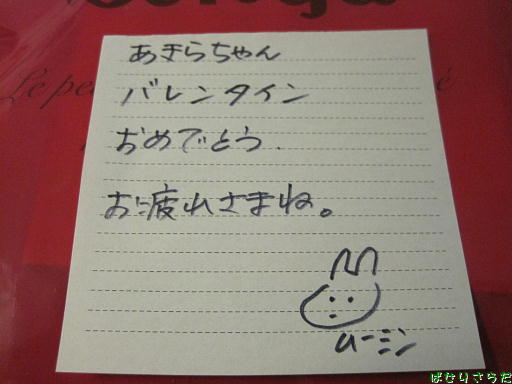 あきらちゃん
バレンタイン
おめでとう.
お疲れさまね。
ムーミン
ばなりさらだ